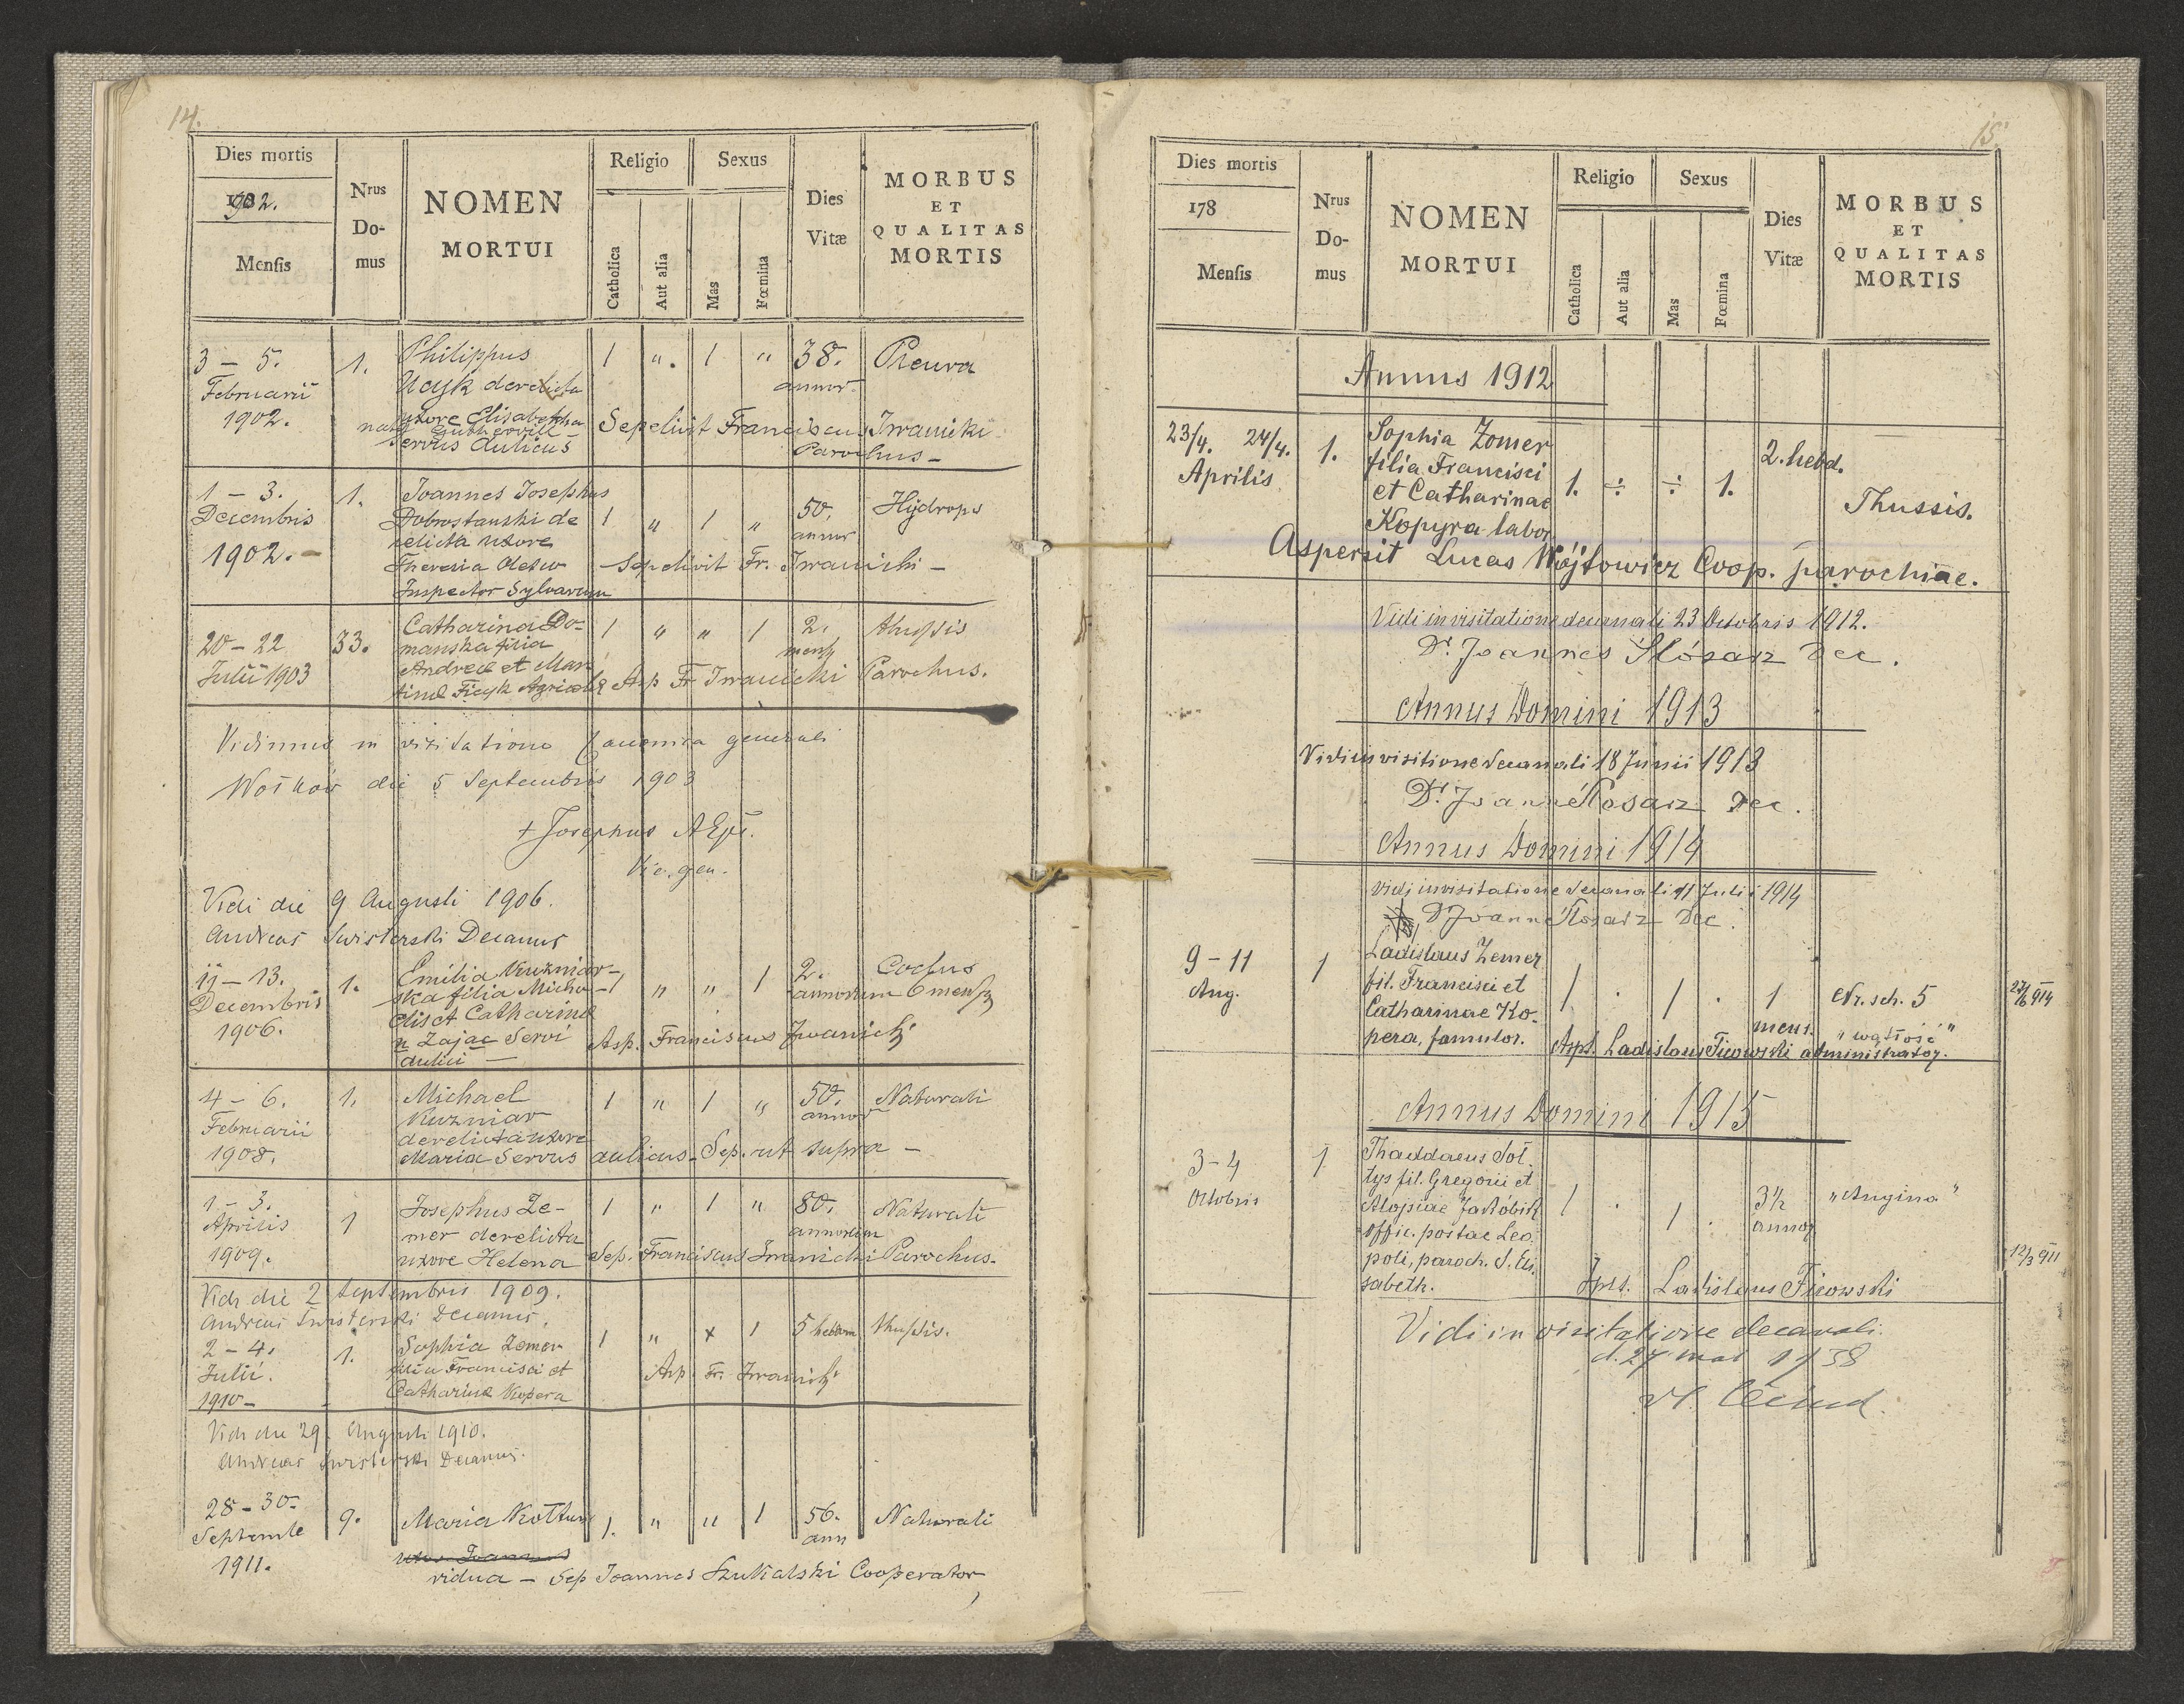 14.
Dies mortis
1902.
Mensis
Nrus
Do-
mus
NOMEN
MORTUI
Religio
Catholica
Aut alia
Sexus
Mas
Fœmina
Dies
Vitæ
MORBUS
ET
QUALITAS
MORTIS
3 – 5. 1. Philippus 1 ". 1 " 38. Pleura
Februarii derelicta annor.
1902. uxore Elisabetha Sepelivit Franciscus Iwanicki
nata
servus aulicus Parochus –
1 – 3. 1. Joannes Josephus
Decembris Dobrostanski de 1 " 1 " 50. Hydrops
relicta uxore annor
1902. – Theresia – Sepelivit Fr. Iwanicki –
Inspector Sylvarum
20 – 22 33. Catharina Do- 1 " " 1 2. thussis
Julii 1903 manska filia mens
Andreæ et Mar
tinæ Ficyk Agricolæ Asp Fr Iwanicki Parochus.
Vidimus in visitatione Canonica generali
Wołków die 5 Septembris 1903
+ Josephus AEpi.
Vic. gen.
Vidi die 9 Augusti 1906.
Andreas Swisterski Decanus
11 – 13. 1. Emilia Kuzniar- 1 " " 1 2. Coctus
Decembris ska filia Micha- annorum 6 mens
1906. elis et Catharinæ
n Zając Servi Asp. Franciscus Iwanicki
aulici —
4 – 6. 1. Michael 1 " 1 " 50. Naturali
Februarii Kuzniar annor
1908. derelicta uxore
Maria Servus aulicus – Sep. ut supra –
1 – 3. 1 Josephus Ze- 1 " 1 " 80. Naturali
Aprilis mer derelicta annorum
1909. uxore Helena Sep. Franciscus Iwanicki Parochus.
Vidi die 2 Septembris 1909.
Andreas Swisterski Decanus.
2 – 4. 1. Sophia Zemer 1 " x 1 5 hebdom thussis.
Julii. filia Francisci et Asp. Fr. Iwanicki
1910 – Catharinæ Kopera
Vidi die 29. Augusti 1910.
Andreas Swisterski Decanus.
28 – 30 9. Maria Kottun 1. " " 1 56. Naturali
Septembr ann
1911. uxor Joannes
vidua – Sep Joannes Szukalski Cooperator
15.
Dies mortis
178
Mensis
Nrus
Do-
mus
NOMEN
MORTUI
Religio
Catholica
Aut alia
Sexus
Mas
Fœmina
Dies
Vitæ
MORBUS
ET
QUALITAS
MORTIS
Annus 1912
23/4. 24/4. 1. Sophia Zomer 2. hebd.
Aprilis filia Francisci
et Catharinae 1. ÷ ÷ 1. Thussis.
Kopyra labor
Aspersit Lucas Wójtowicz Coop. parochiae.
Vidi in visitatione decanali 23 Octobris 1912.
Dr. Joannes Ślósarz Dec.
Annus Domini 1913
Vidi in visitione decanali 18 Junii 1913
Dr. Joannes Ślosarz Dec.
Annus Domini 1914
Vidi in visitatione decanali 11 Julii 1914
Dr Joannes Ślosarz Dec.
9 – 11 1 Ladislaus Zemer
Aug. fil. Francisci et 1 . 1 . 1 Nr. sch. 5
Catharinae Ko- mens. „wątłość"
pera, famulor. Asps. Ladislaus Ficowski administrator.
Annus Domini 1915
3 – 4 1 Thaddaeus Soł-
Octobris tys fil. Gregorii et
Aloysiae Jakóbik 1 . 1 . 3½ „Angina"
offic. postae Leo annor
poli, paroch. S. Eli
sabeth. Asps. Ladislaus Ficowski
Vidi in visitatione decanali
d. 27 1938